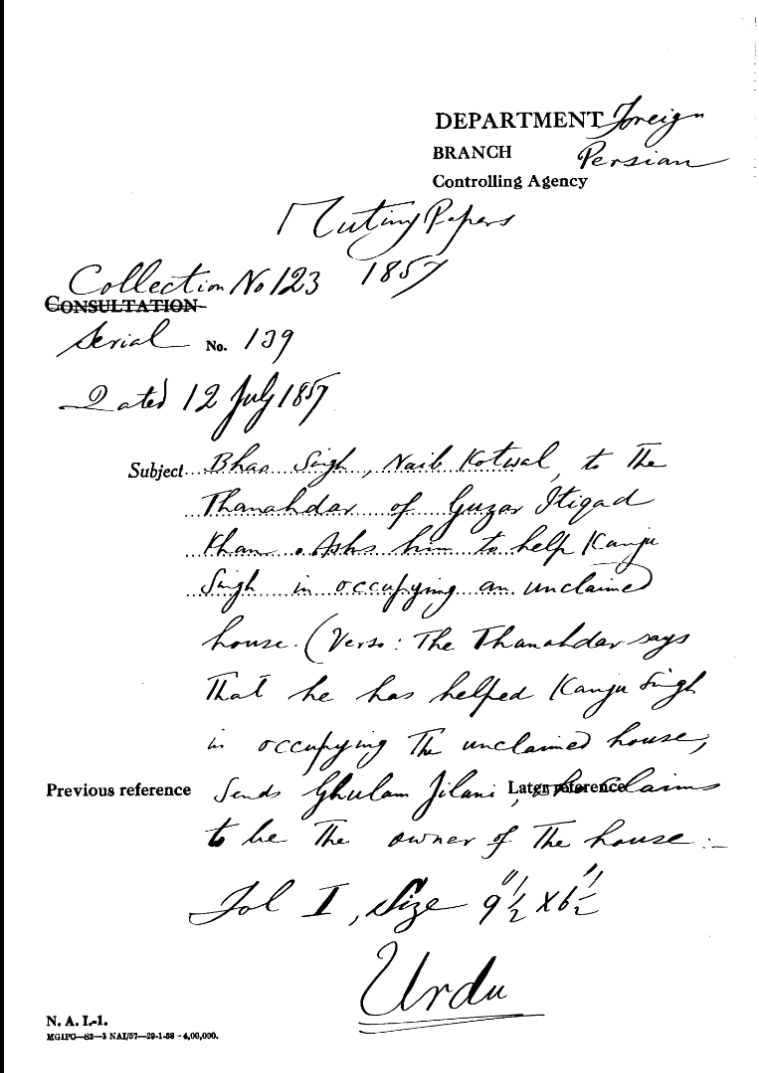 DEPARTMENT Foreign
BRANCH Persian
Controlling Agency
Mutiny Papers
Collection No 123 1857
CONSULTATION
Serial No. 139
Dated 12 July 1857
Subject Bhao Singh, Naib Kotwal, to the
Thanahdar of Guzar Itiqad
Khan. Asks him to help Kanju
Singh in occupying an unclaimed
house. (Verso: The Thanahdar says
That he has helped Kanju Singh
in occupying The unclaimed house,
Previous reference Sends Ghulam Jilani, who claims Later reference
to be The owner of The house:-
Fol I, Size 9"½ x 6"½
Urdu
N. A. I.-1.
MGIPC—S2—3 NAI/57—29-1-58 - 4,00,000.